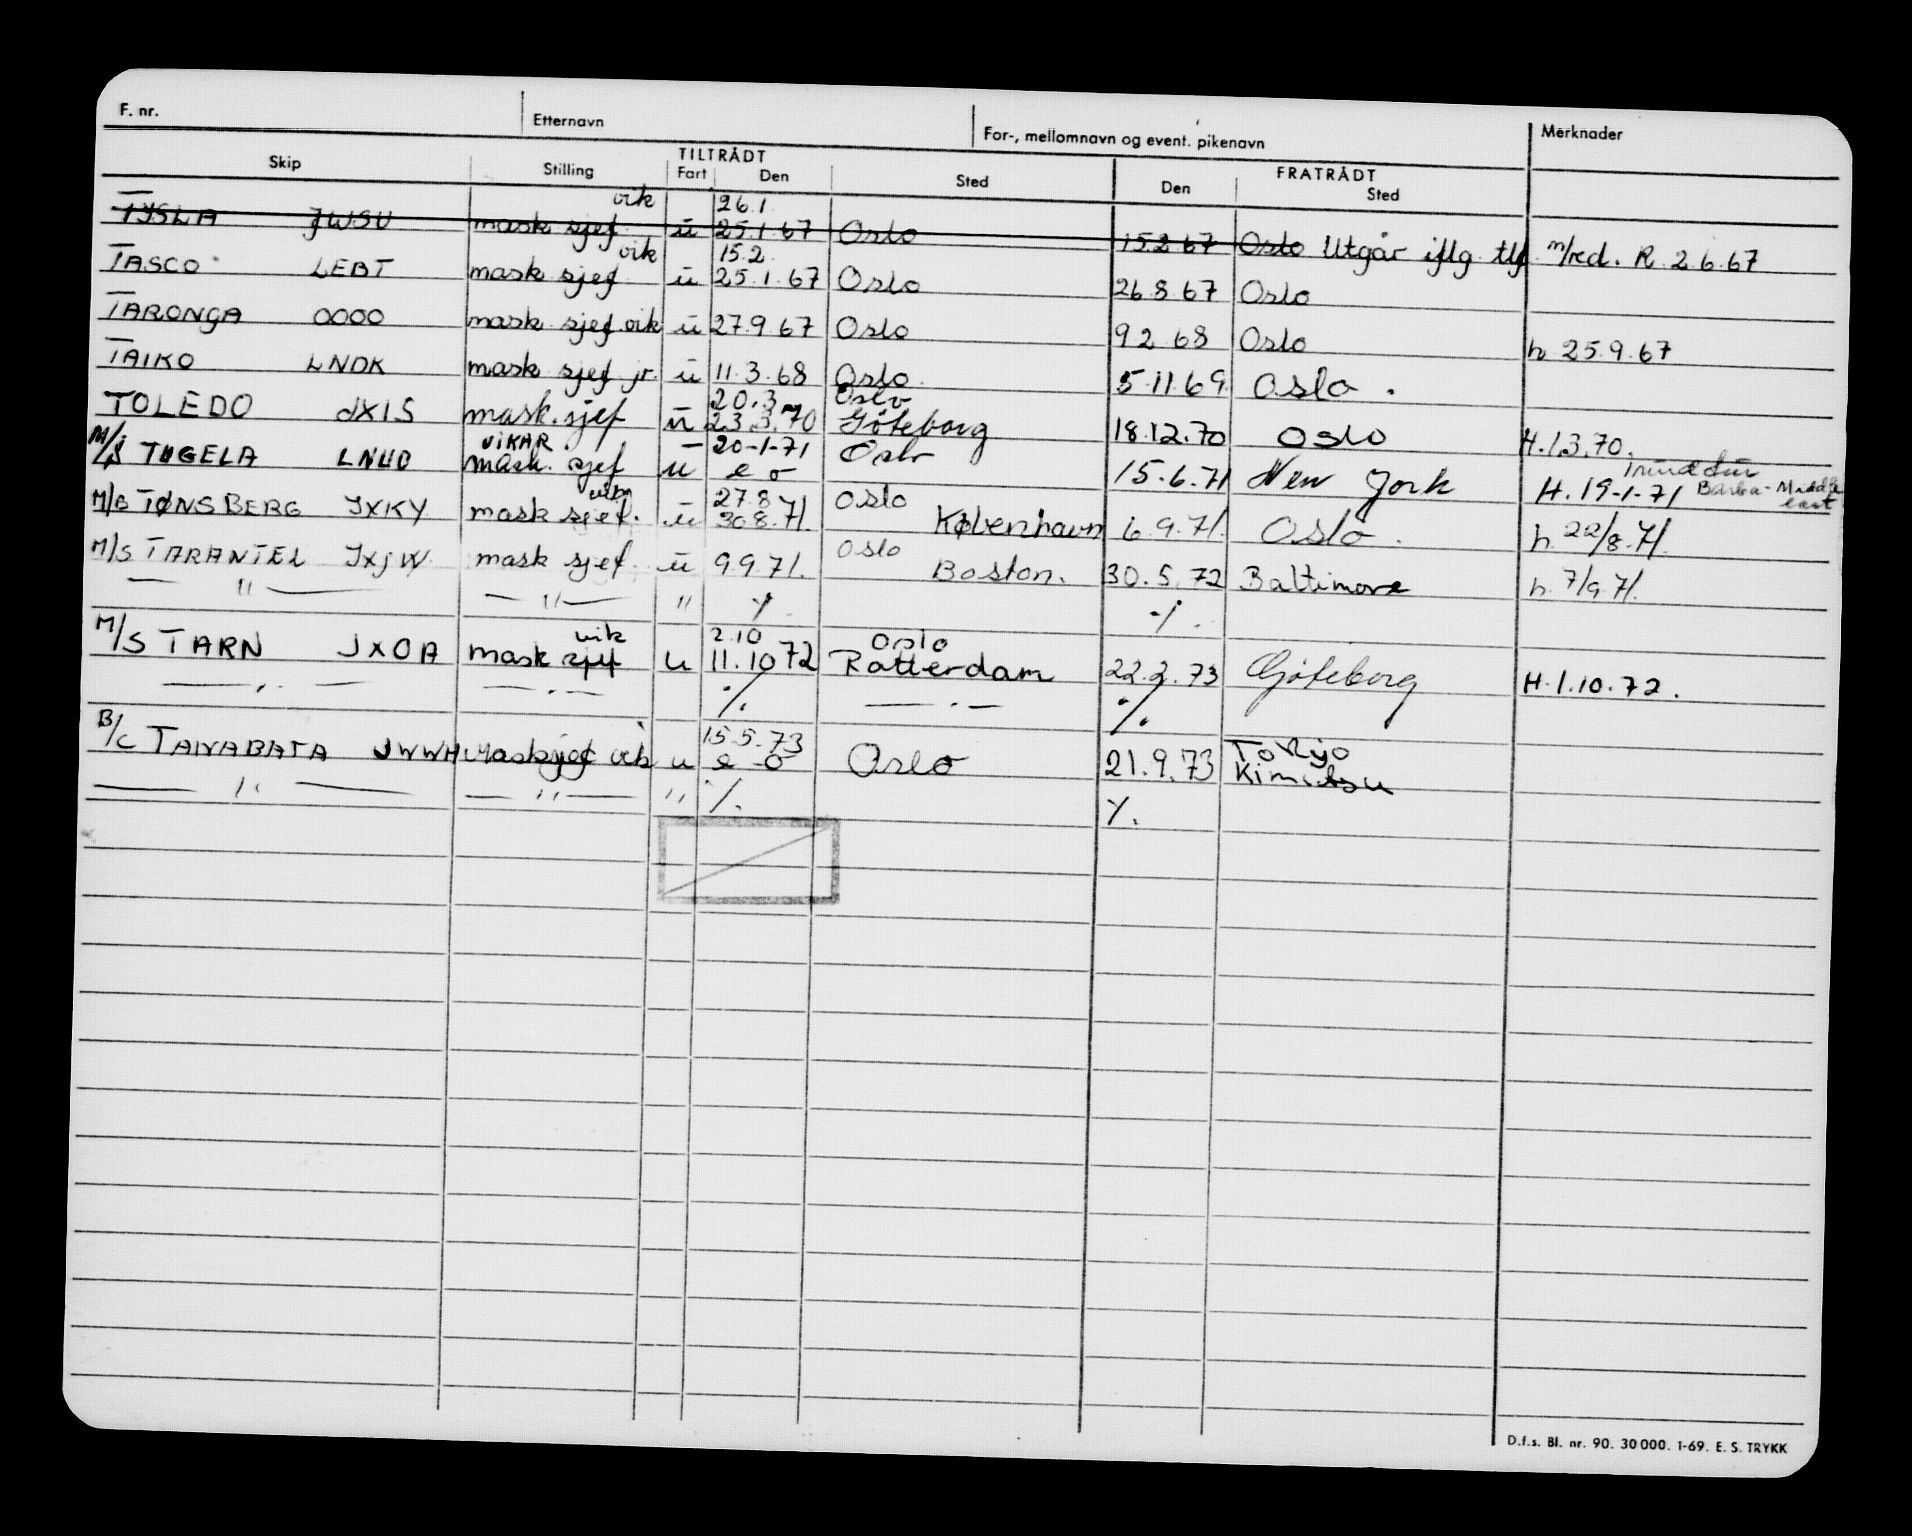 F. nr. Etternavn For-, mellomnavn og event. pikenavn Merknader
TILTRÅDT FRATRÅDT
Skip Stilling Fart Den Sted Den Sted
vik 26.1
TYSLA JWSU mask sjef u 25.1.67 Oslo 15.2 67 Oslo Utgår iflg. tlf. m/red. R. 2.6.67
vik 15.2
TASCO LEBT mask sjef u 25.1.67 Oslo 26.8.67 Oslo
TARONGA OOOO mask sjef vik u 27.9.67 Oslo 9.2.68 Oslo h 25.9.67
TAIKO LNDK mask sjef jr. u 11.3.68 Oslo 5.11.69 Oslo.
20.3 Oslo
TOLEDO JXIS mask. sjef u 23.3.70 Göteborg 18.12.70 Oslo H.1.3.70.
VIKAR 20-1-71
M/S TUGELA mask. sjef u e o Oslo 15.6.71 New York H. 19-1-71 Barba - Middle east
vik 27.8 Oslo
M/S TØNSBERG JXKY mask sjef. u 30.8.71. København 6.9.71. Oslo. h. 22/8.71.
Oslo
M/S TARANTEL JXJW mask sjef. u 9.9.71. Boston. 30.5.72 Baltimore h. 7/9 71.
— " — — " — " ./. ./.
vik 2.10 Oslo
M/S TARN JXOA mask sjef u 11.10 72 Rotterdam 22.2.73 Göteborg H.1.10.72.
— " — — " — ./. — " — ./.
15.5.73 Tokyo
B/C TANABATA JWWH Masksjef vik u e o Oslo 21.9.73 Kimitsu
— " — — " — " ./. ./.
D.f.s. Bl. nr. 90. 30 000. 1-69. E. S. TRYKK